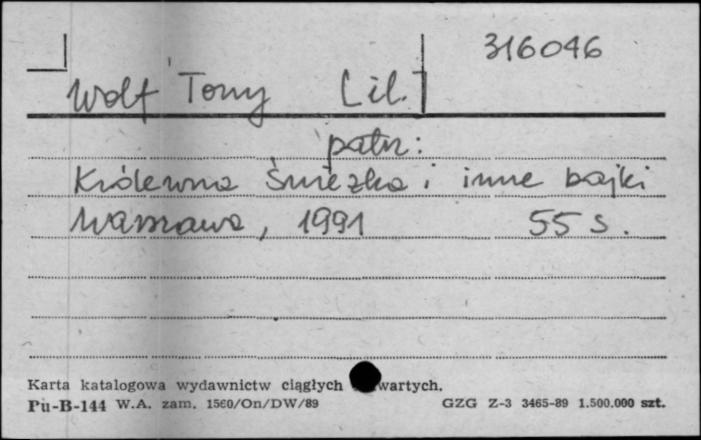 316046
Wolf Tony [il.]
patrz:
Królewna Śnieżka i inne bajki
Warszawa, 1991 55 s.
Karta katalogowa wydawnictw ciągłych wartych.
Pu-B-144 W.A. zam. 1560/On/DW/89 GZG Z-3 3465-89 1.500.000 szt.